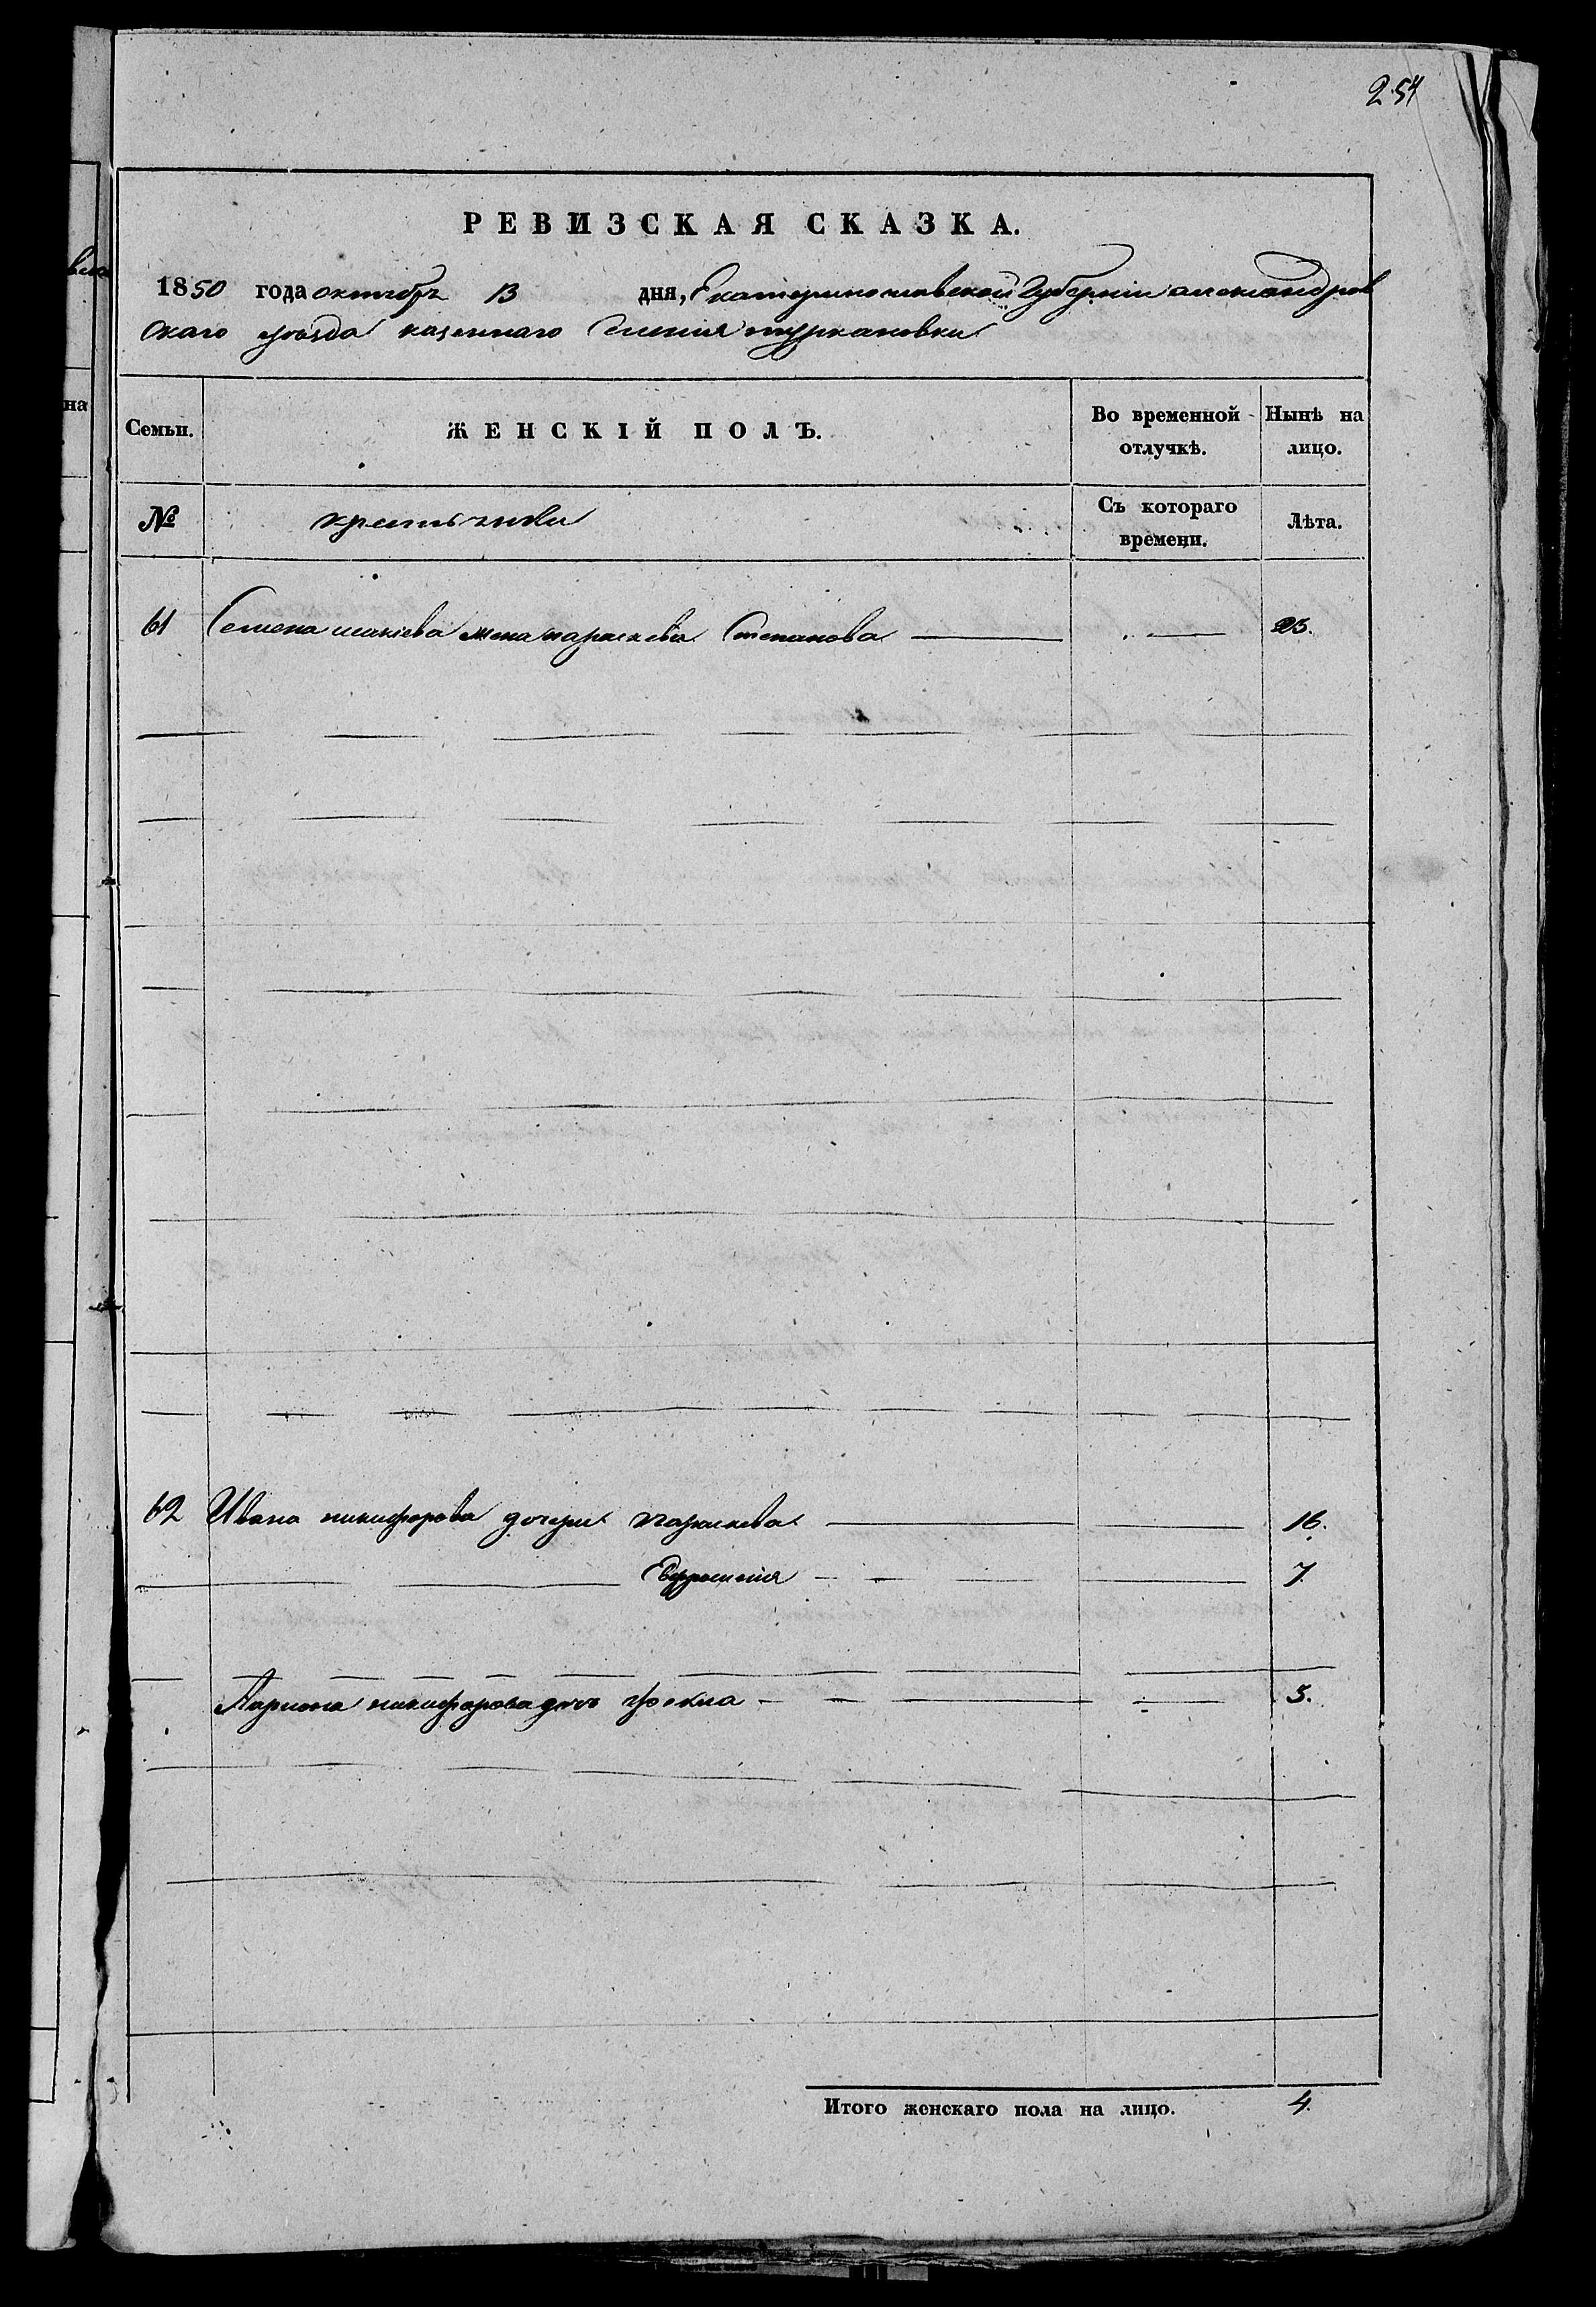 254
РЕВИЗСКАЯ СКАЗКА.
1850 года октября 13 дня, Екатеринославской Губернии александров
скаго уезда казеннаго Селения туркановки
Семьи.
ЖЕНСКІЙ ПОЛЪ.
Во временной отлучкѣ.
Нынѣ на лицо.
№
Съ котораго времени.
Лѣта.
61 Семена исакіева жена параскева Степанова 23.
62 Ивана никифорова дочери параскева 16.
Ефросинія 7.
Лариона никифорова дочь фекла 5.
Итого женскаго пола на лицо. 4.